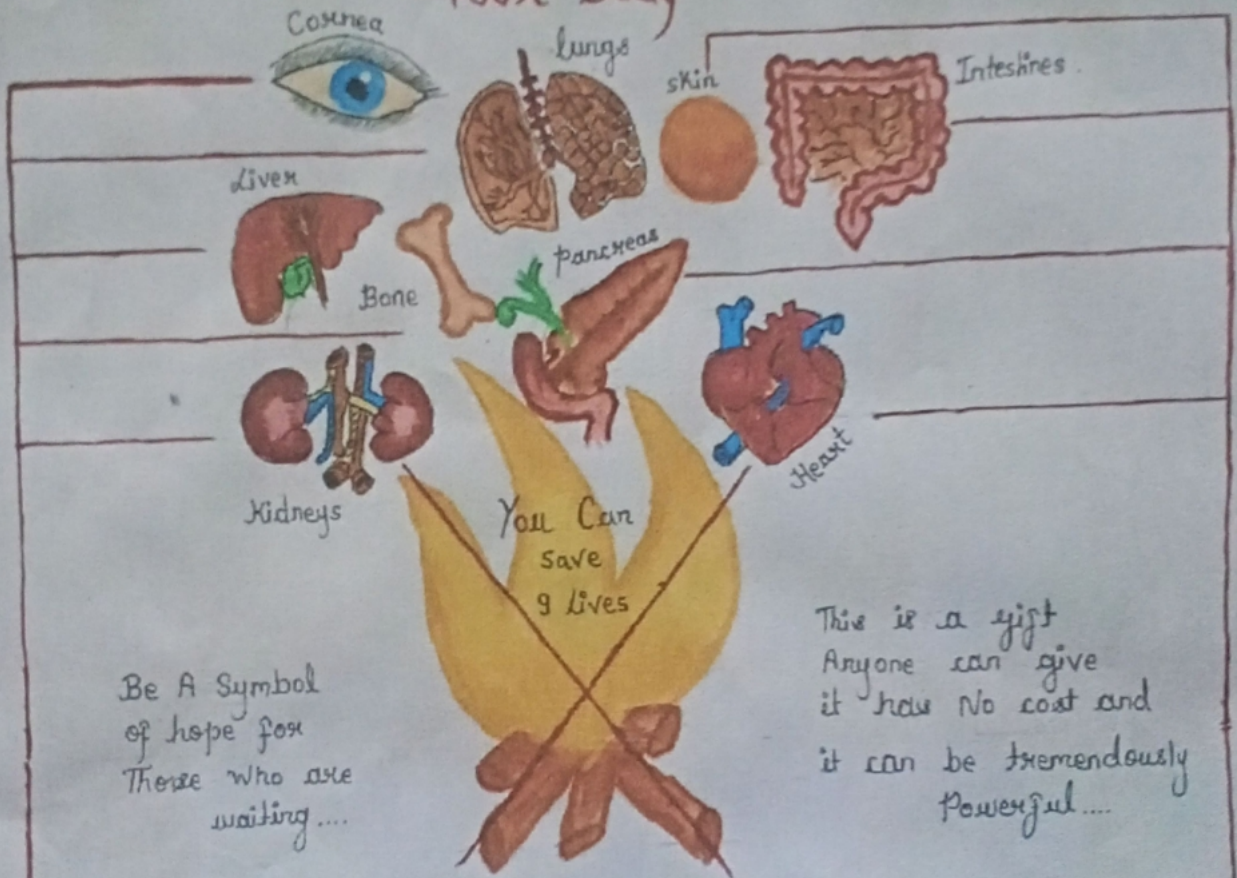 Cornea
lungs
skin
Intestines.
Liver
Bone
Pancreas
Kidneys
Heart
You Can
save
9 Lives
Be A Symbol
of hope for
Those who are
waiting....
This is a gift
Anyone can give
it has No cost and
it can be tremendously
Powerful....